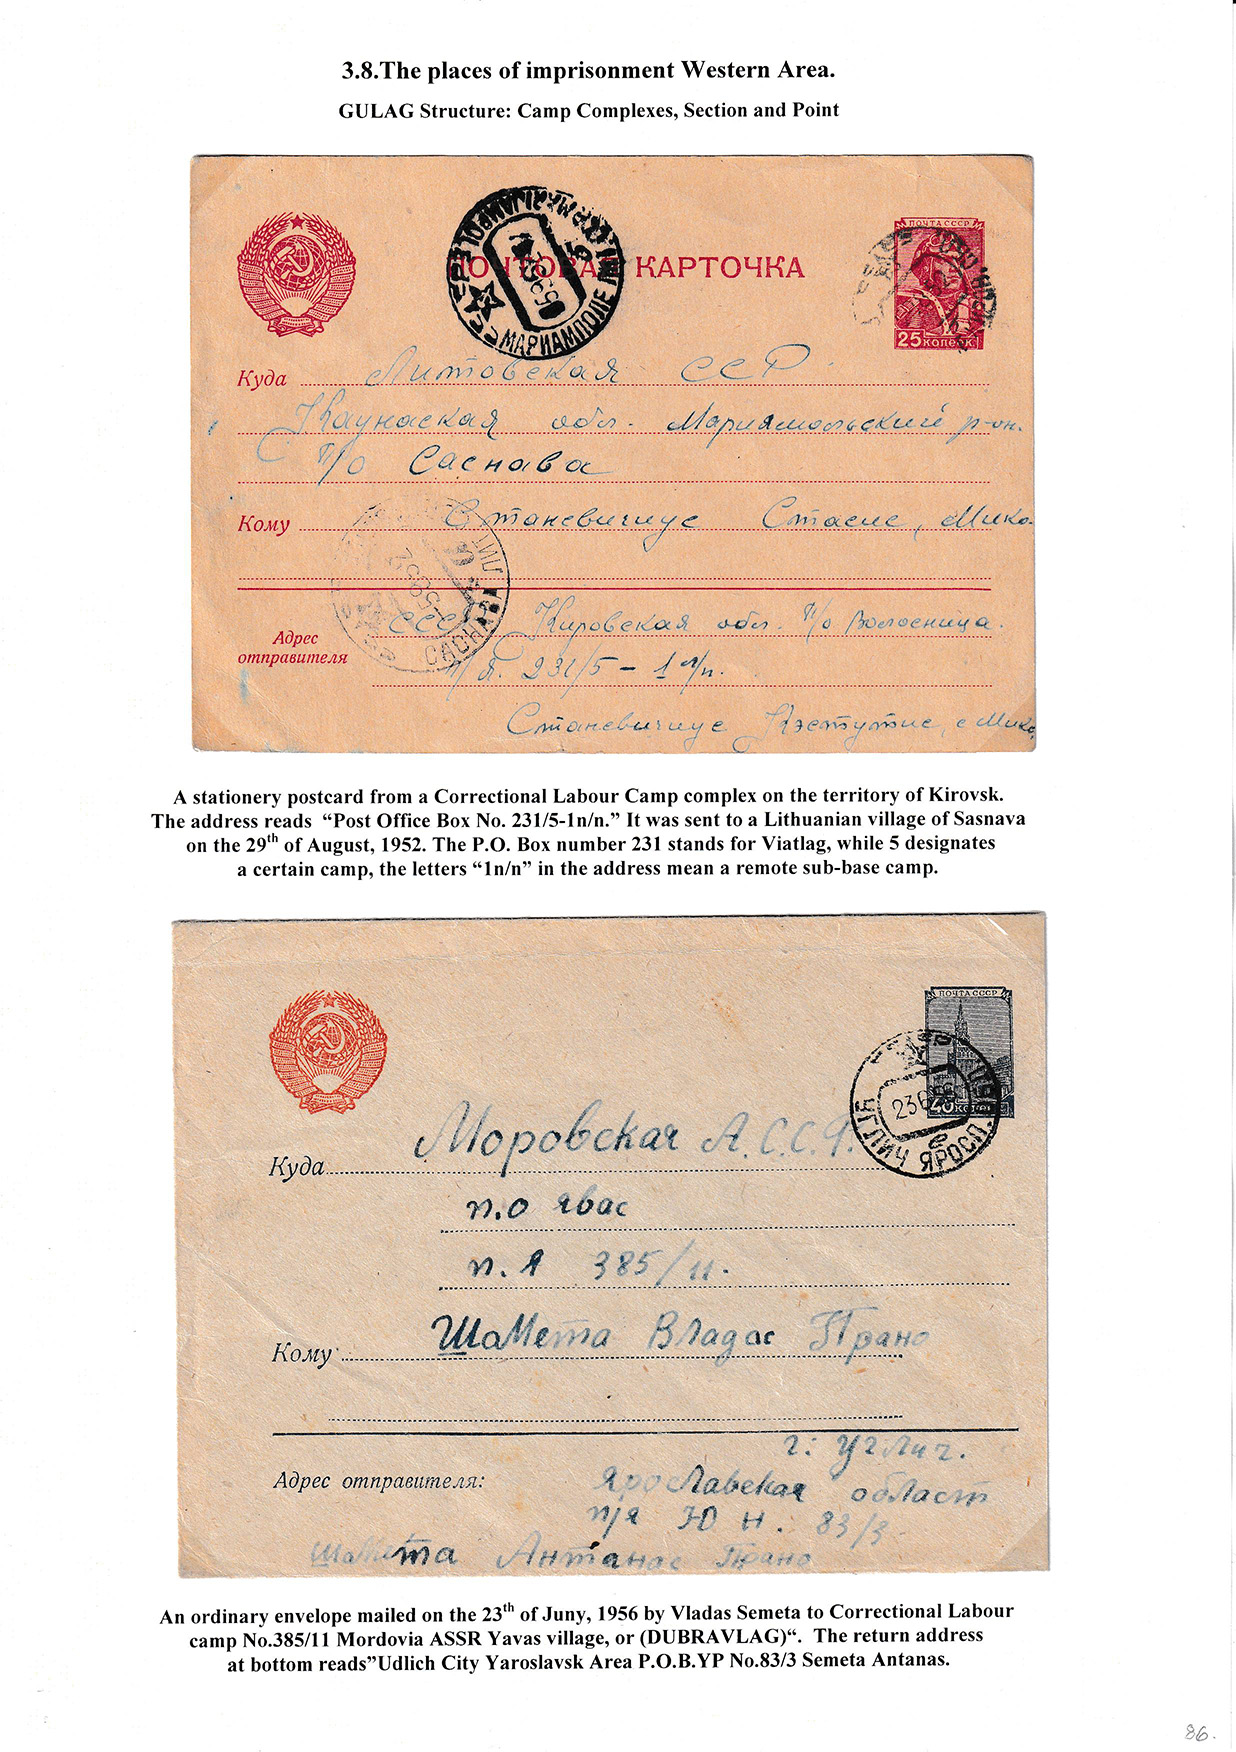 3.8.The places of imprisonment Western Area.
GULAG Structure: Camp Complexes, Section and Point
ПОЧТА СССР
25 КОПЕЕК
ПОЧТОВАЯ КАРТОЧКА
MARIJAMPOLE
МАРИАМПОЛЕ
Куда Литовская ССР.
Каунаская обл. Мариямпольский р-он.
П/О Саснава
Кому Станевичиус Стасис, Мико.
САСНАВА
Адрес отправителя
СССР Кировская обл. П/о Волосница.
П/Я. 231/5 – 1 л/п.
Станевичиус Кэстутис, с Мико.
A stationery postcard from a Correctional Labour Camp complex on the territory of Kirovsk.
The address reads “Post Office Box No. 231/5-1n/n.” It was sent to a Lithuanian village of Sasnava
on the 29th of August, 1952. The P.O. Box number 231 stands for Viatlag, while 5 designates
a certain camp, the letters “1n/n” in the address mean a remote sub-base camp.
ПОЧТА СССР
40 КОПЕЕК
УГЛИЧ ЯРОСЛ.
23 6
Куда Моровская А.С.С.Р.
п.о Явас
п.я 385/11.
Кому Шамета Владас Прано
г: Углич.
Адрес отправителя: Ярославская область
п/я Ю Н. 83/3
Шамета Антанас Прано
An ordinary envelope mailed on the 23th of Juny, 1956 by Vladas Semeta to Correctional Labour
camp No.385/11 Mordovia ASSR Yavas village, or (DUBRAVLAG)“. The return address
at bottom reads”Udlich City Yaroslavsk Area P.O.B.YP No.83/3 Semeta Antanas.
86.